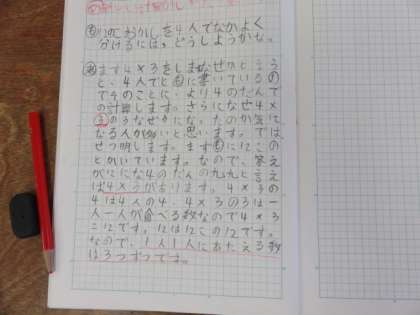 12このおかしを4人でなかよく
分けるには、どうしようかな。
まず4×3をしまなぜかと言う
と、4人でと㋲に書いているの
でそのことに、より4のだんで
の計算します。さらになぜ4×
③の3なぜかになったのか気に
なる人が多いと思います。では
せつ明します。まず㋲に12この
とかいています。なので、答え
が12になる4のだんの九九と言え
ば4×3があります。4×3の
4は4人の4、4×3の3は一
人一人が食べる数なので4×3
=12です。12は12この12です。
なので、1人1人にあたえる数
は3つずつです。